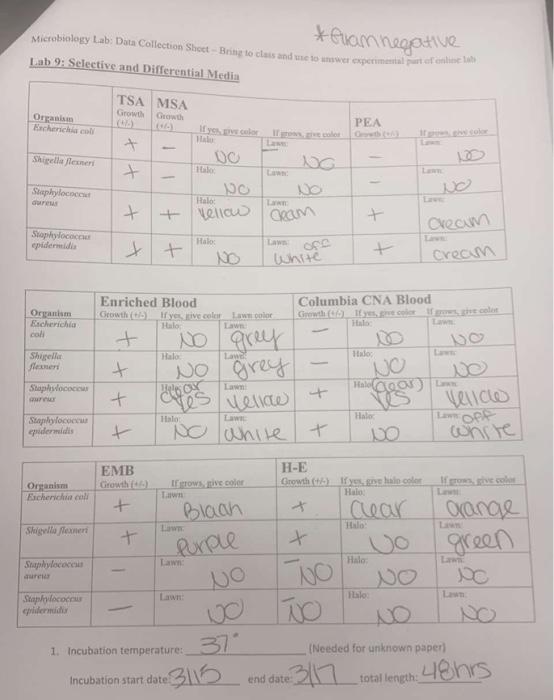 *Gramnegative
Microbiology Lab: Data Collection Sheet – Bring to class and use to answer experimental part of online lab
Lab 9: Selective and Differential Media
TSA MSA
Organism Growth (+/-) Growth (+/-) If yes, give color If grows, give color PEA Growth (+/-) If grows, give color
Escherichia coli + – Halo: NO Lawn: NO – Lawn: NO
Shigella flexneri + – Halo: NO Lawn: NO – Lawn: NO
Staphylococcus aureus + + Halo: Yellow Lawn: Cream + Lawn: Cream
Staphylococcus epidermidis + + Halo: NO Lawn: off white + Lawn: cream
Enriched Blood Columbia CNA Blood
Organism Growth (+/-) If yes, give color Lawn color Growth (+/-) If yes, give color If grows, give color
Escherichia coli + Halo: NO Lawn: grey – Halo: NO Lawn: NO
Shigella flexneri + Halo: NO Lawn: grey – Halo: NO Lawn: NO
Staphylococcus aureus + Halo: clear Yes Lawn: Yellow + Halo: (clear) Yes Lawn: Yellow
Staphylococcus epidermidis + Halo: NO Lawn: White + Halo: NO Lawn: OFF White
EMB H-E
Organism Growth (+/-) If grows, give color Growth (+/-) If yes, give halo color If grows, give color
Escherichia coli + Lawn: + Halo: Clear Lawn: Orange
Shigella flexneri + Lawn: Purple + Halo: NO Lawn: green
Staphylococcus aureus – Lawn: NO – NO Halo: NO Lawn: NO
Staphylococcus epidermidis – Lawn: NO – NO Halo: NO Lawn: NO
1. Incubation temperature: 37° (Needed for unknown paper)
Incubation start date: 3/15 end date: 3/17 total length: 48hrs